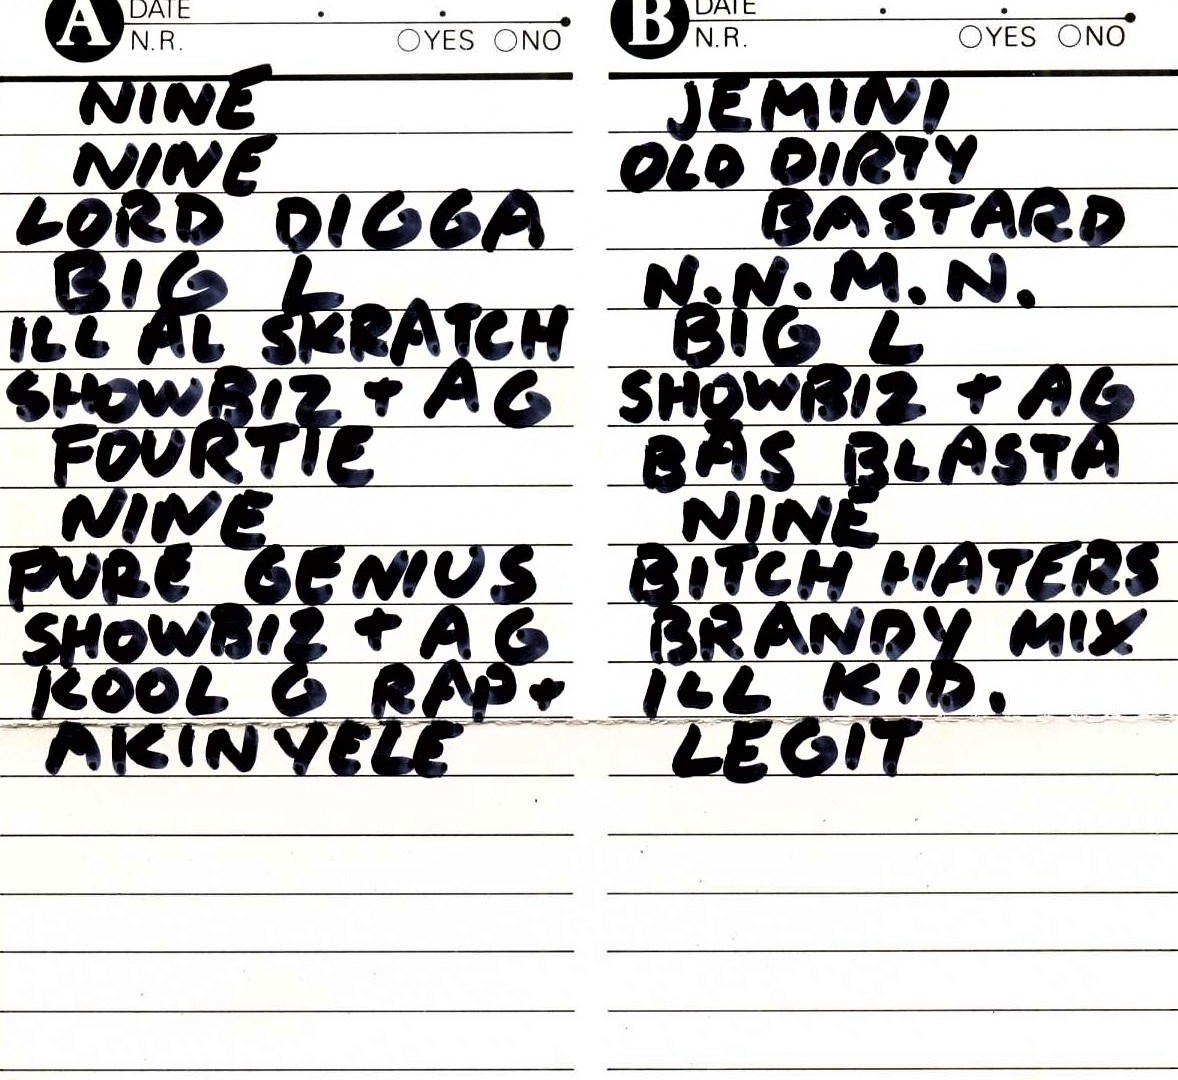 A DATE
N.R. YES NO
NINE
NINE
LORD DIGGA
BIG L
ILL AL SKRATCH
SHOWBIZ + AG
FOURTIE
NINE
PURE GENIUS
SHOWBIZ + AG
KOOL G RAP +
AKINYELE
B DATE
N.R. YES NO
JEMINI
OLD DIRTY
BASTARD
N.N.M.N.
BIG L
SHOWBIZ + AG
BAS BLASTA
NINE
BITCH HATERS
BRANDY MIX
ILL KID.
LEGIT